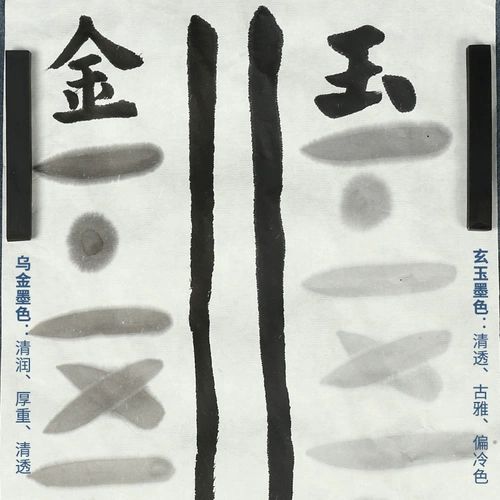 玉
金
玄玉墨色：清透、古雅、偏冷色
乌金墨色：清润、厚重、清透